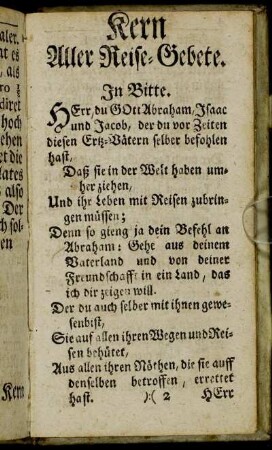 aler.
at es
, als
ro ꝛ
diret
hoch
ehen
et die
lates
s also
Der
ch sol-
en
Kern
Kern
Aller Reise-Gebete.
In Bitte.
HErr, du GOtt Abraham, Isaac
und Jacob, der du vor Zeiten
diesen Ertz-Vätern selber befohlen
hast,
Daß sie in der Welt haben um-
her ziehen,
Und ihr Leben mit Reisen zubrin-
gen müssen;
Denn so gieng ja dein Befehl an
Abraham: Gehe aus deinem
Vaterland und von deiner
Freundschafft in ein Land, das
ich dir zeigen will.
Der du auch selber mit ihnen gewe-
sen bist,
Sie auf allen ihren Wegen und Rei-
sen behütet,
Aus allen ihren Nöthen, die sie auff
denselben betroffen, errettet
hast. ):( 2 HErr